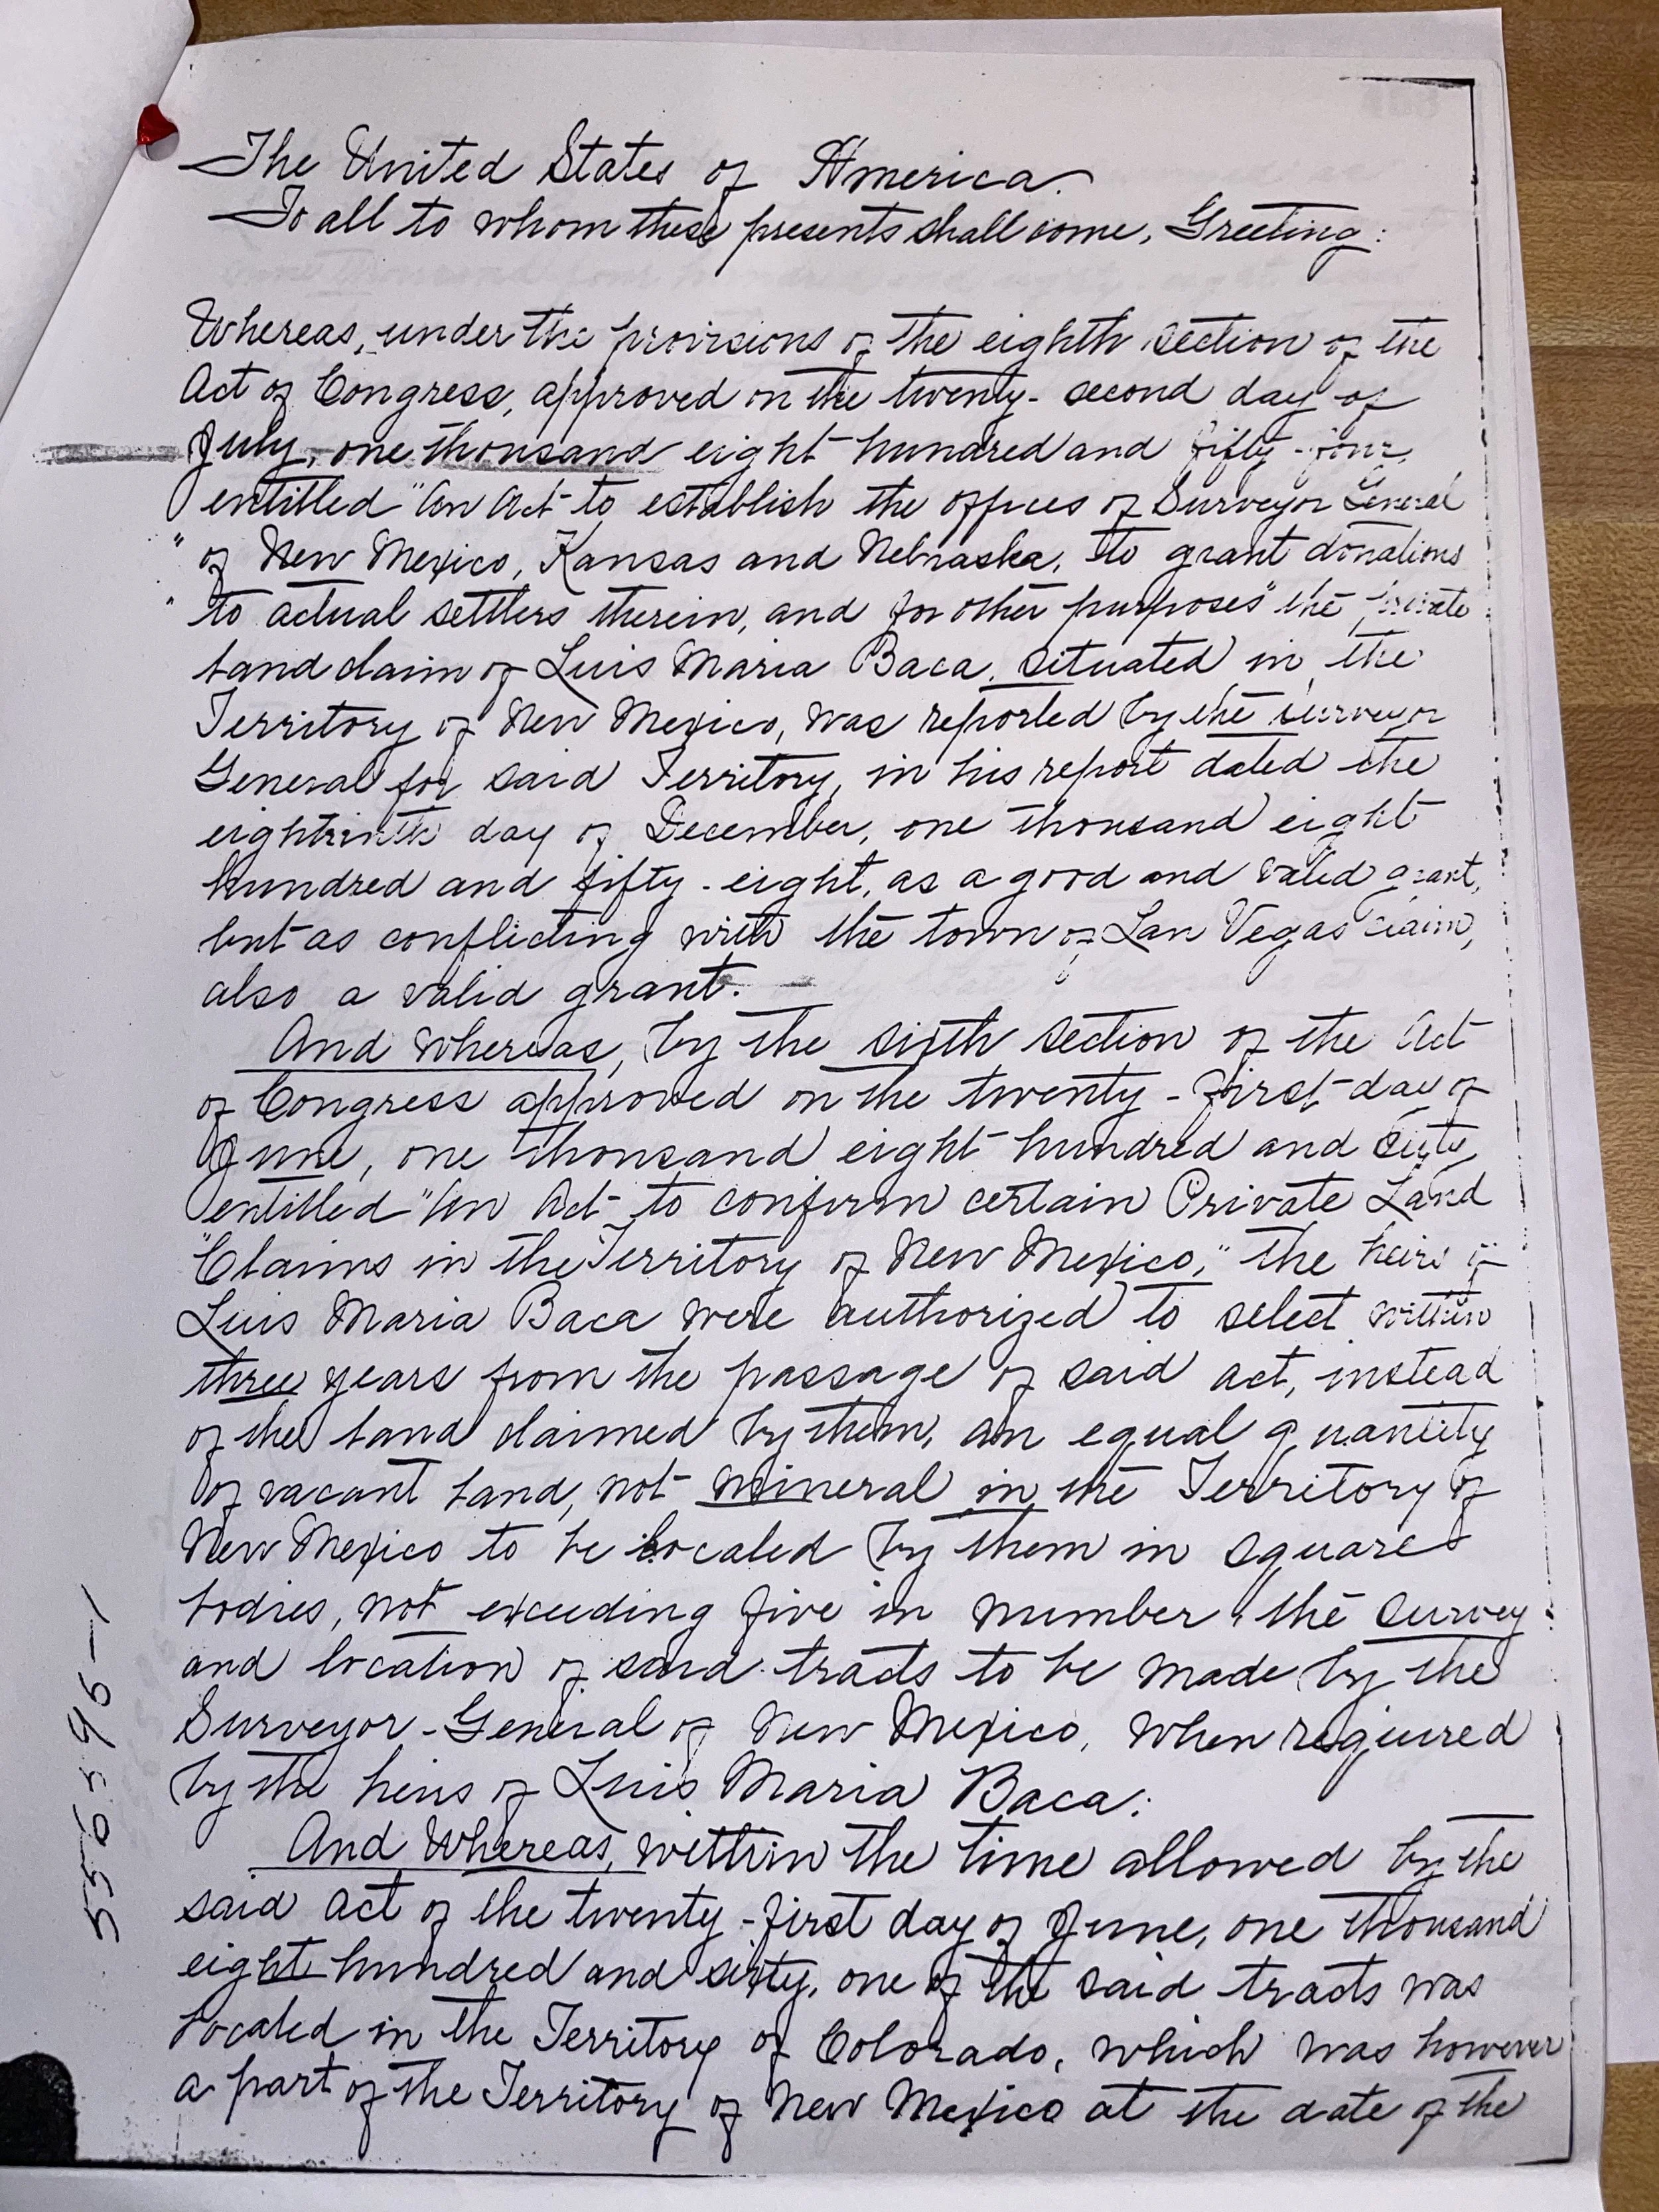 The United States of America.
To all to whom these presents shall come, Greeting:
Whereas, under the provisions of the eighth section of the
Act of Congress, approved on the twenty-second day of
July, one thousand eight hundred and fifty-four,
entitled "An Act to establish the offices of Surveyor General
" of New Mexico, Kansas and Nebraska, to grant donations
" to actual settlers therein, and for other purposes" the private
land claim of Luis Maria Baca, situated in the
Territory of New Mexico, was reported by the Surveyor
General for said Territory, in his report dated the
day of December, one thousand eight
hundred and fifty-eight, as a good and valid grant,
but as conflicting with the town of Las Vegas claim,
also a valid grant.
And Whereas, by the sixth section of the Act
of Congress approved on the twenty-first day of
June, one thousand eight hundred and sixty,
entitled "An Act to confirm certain Private Land
"Claims in the Territory of New Mexico," the heirs of
Luis Maria Baca were authorized to select within
three years from the passage of said act, instead
of the land claimed by them, an equal quantity
of vacant land, not mineral in the Territory of
New Mexico to be located by them in square
bodies, not exceeding five in number, the survey
and location of said tracts to be made by the
Surveyor-General of New Mexico, when required
by the heirs of Luis Maria Baca:
And Whereas, within the time allowed by the
said act of the twenty-first day of June, one thousand
eight hundred and sixty, one of the said tracts was
located in the Territory of Colorado, which was however
a part of the Territory of New Mexico at the date of the
556596-1